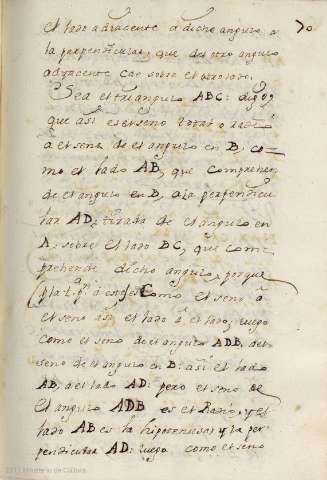 70
el lado adjacente a dicho angulo a
la perpendicular, que del otro angulo
adjacente cae sobre el otro lado.
Sea el triangulo ABC: digo
que asi es el seno total o radio
a el seno de el angulo en B, co=
mo el lado AB, que comprehen
de el angulo en B, a la perpendicu
lar AD, tirada de el angulo en
A, sobre el lado BC, que com=
prehende dicho angulo, porque
como el seno a
el seno asi el lado a el lado; luego
como el seno de el angulo ADB, al
seno de el angulo en B: asi el lado
AB, a el lado AD: pero el seno de
el angulo ADB es el Radio, y el
lado AB es la hipotenusa; y la per
pendicular AD: luego como el seno
2011 Ministerio de Cultura